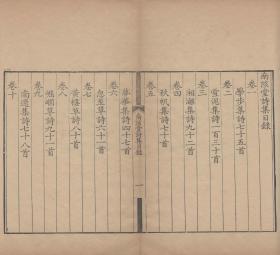 南陔堂詩集目錄
卷一
學步集詩七十五首
卷二
雪泥集詩一百三十首
卷三
湘漓集詩九十二首
卷四
秋帆集詩七十七首
卷五
集詩四十七首
卷六
怠至草詩六十一首
卷七
黃樓草詩八十首
卷八
草詩九十一首
卷九
南還集詩七十八首
卷十